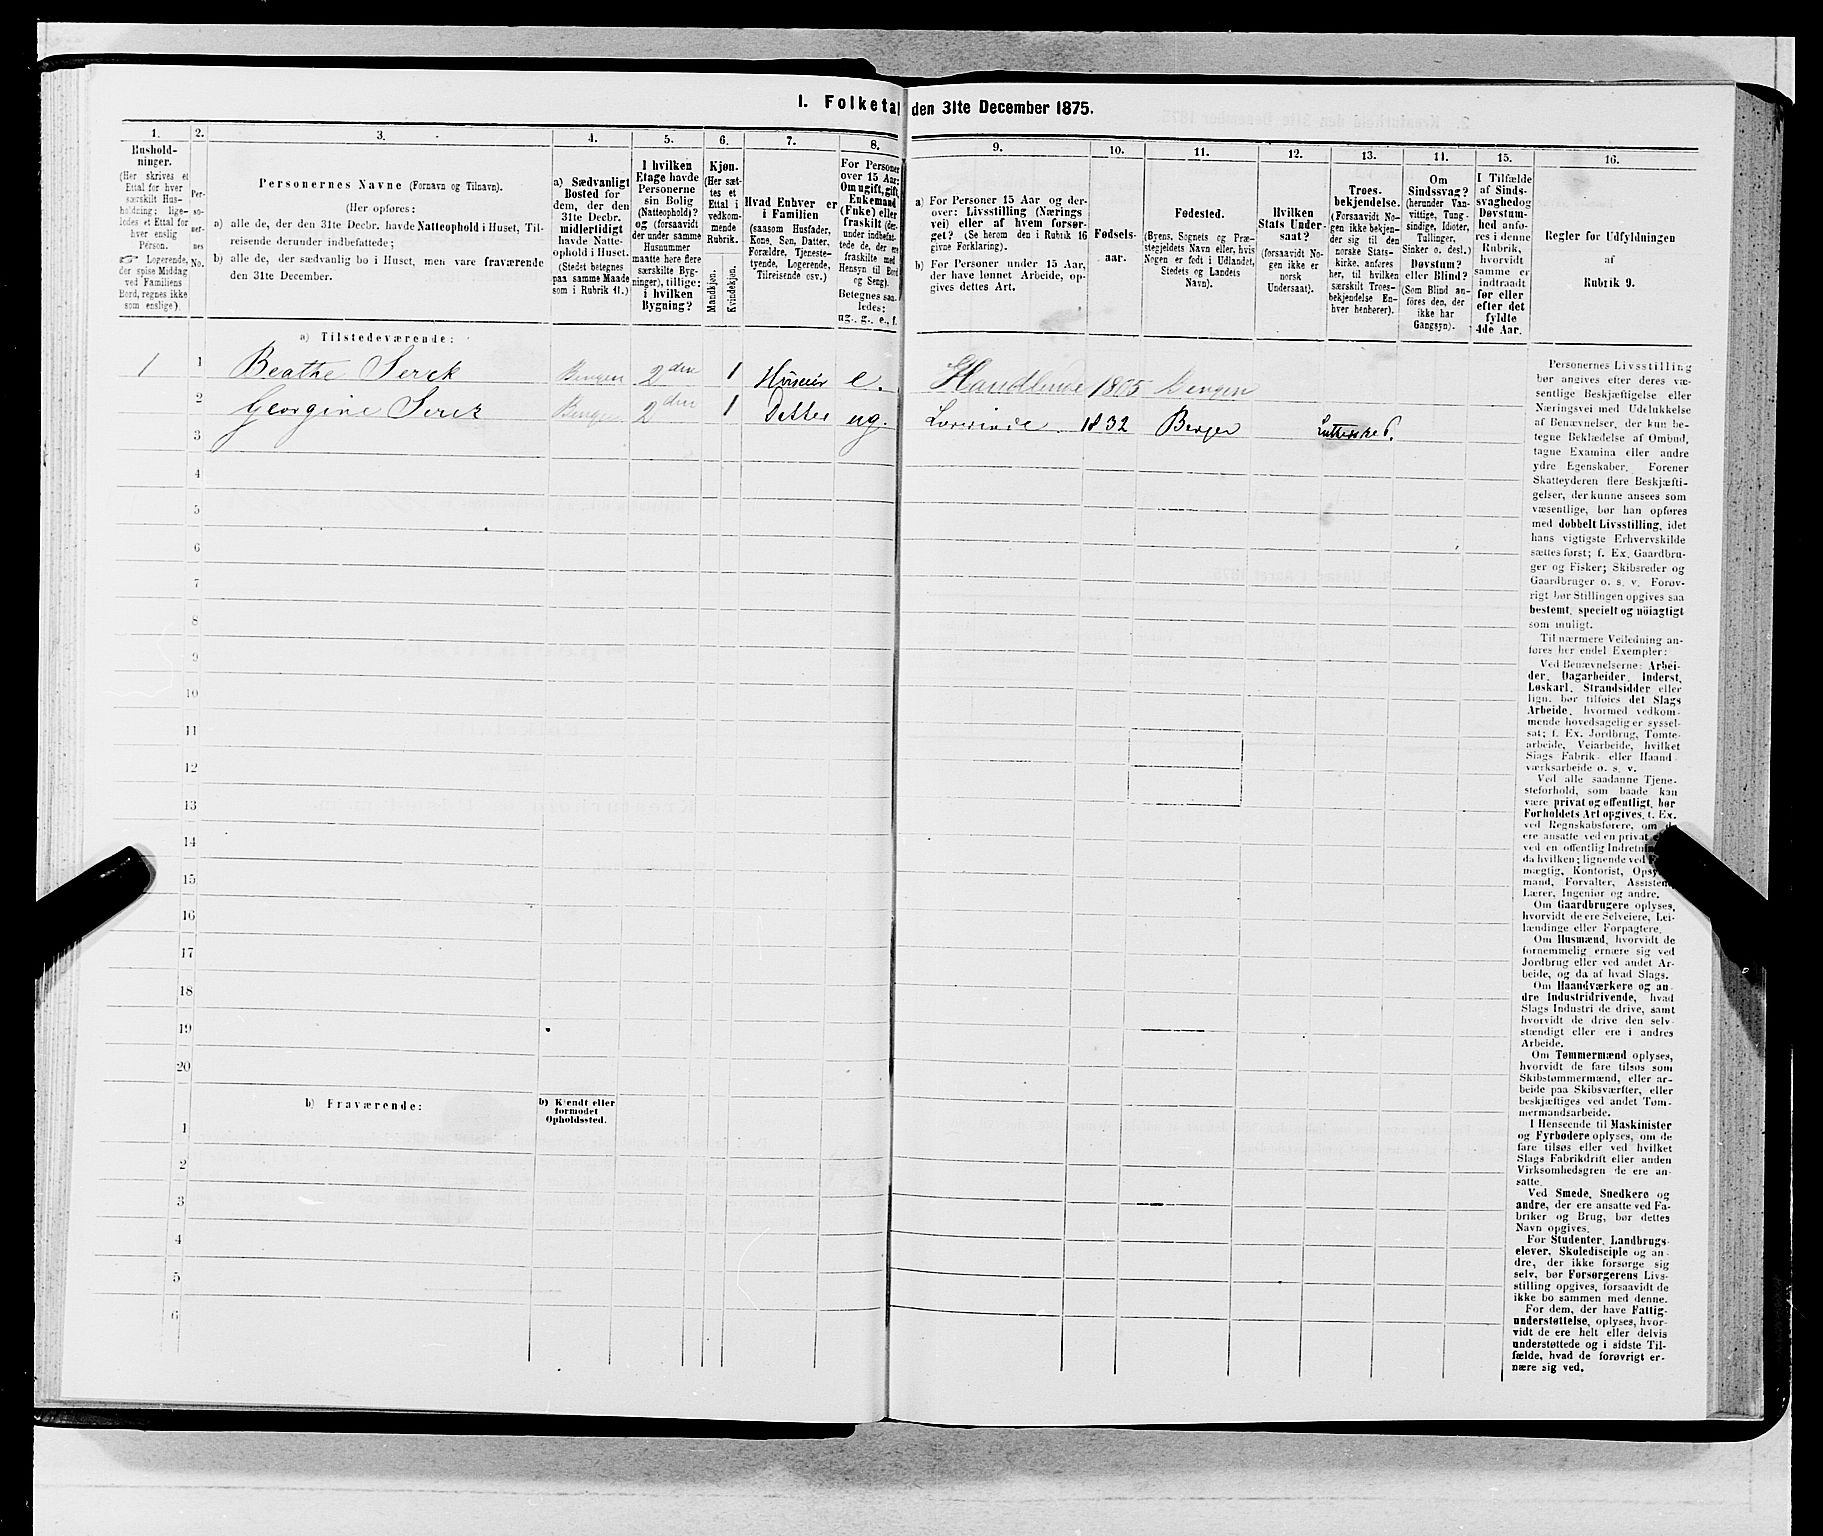 1. Folketal den 31te December 1875.
1. 2. 3. 4. 5. 6. 7. 8. 9. 10. 11. 12. 13. 14. 15. 16.
Hushold-
ninger.
(Her skrives et
Ettal for hver
særskilt Hus-
holdning; lige-
ledes et Ettal for
hver enslig
Person.
☞ Logerende,
der spise Middag
ved Familiens
Bord, regnes ikke
som enslige).
Per-
so-
ner-
nes
No.
Personernes Navne (Fornavn og Tilnavn).
(Her opføres:
a) alle de, der den 31te Decbr. havde Natteophold i Huset, Til-
reisende derunder indbefattede;
b) alle de, der sædvanlig bo i Huset, men vare fraværende
den 31te December.
a) Sædvanligt
Bosted for
dem, der den
31te Decbr.
midlertidigt
havde Natte-
ophold i Huset.
(Stedet betegnes
paa samme Maade
som i Rubrik 11.)
I hvilken
Etage havde
Personerne
sin Bolig
(Natteophold)?
og (forsaavidt
der under samme
Husnummer
maatte høre flere
særskilte Byg-
ninger), tillige:
i hvilken
Bygning?
Kjøn.
(Her sæt-
tes et
Ettal i
vedkom-
mende
Rubrik.
Mandkjøn.
Kvindekjøn.
Hvad Enhver er
i Familien
(saasom Husfader,
Kone, Søn, Datter,
Forældre, Tjeneste-
tyende, Logerende,
Tilreisende osv.)
For Personer
over 15 Aar:
Om ugift, gift,
Enkemand
(Enke) eller
fraskilt (der-
under indbefat-
tede de, der ere
fraskilte med
Hensyn til Bord
og Seng).
Betegnes saa-
ledes:
ug., g., e., f.
a) For Personer 15 Aar og der-
over: Livsstilling (Nærings-
vei) eller af hvem forsør-
get? (Se herom den i Rubrik 16
givne Forklaring).
b) For Personer under 15 Aar,
der have lønnet Arbeide, op-
gives dettes Art.
Fødsels-
aar.
Fødested.
(Byens, Sognets og Præ-
stegjeldets Navn eller, hvis
Nogen er født i Udlandet,
Stedets og Landets
Navn).
Hvilken
Stats Under-
saat?
(forsaavidt No-
gen ikke er
norsk
Undersaat).
Troes-
bekjendelse.
(Forsaavidt No-
gen ikke bekjen-
der sig til den
norske Stats-
Kirke, anføres
her, til hvilken
særskilt Troes-
bekjendelse En-
hver henhører).
Om
Sindssvag?
(herunder Van-
vittige, Tung-
sindige, Idioter,
Tullinger,
Sinker o. desl.)
Døvstum?
eller Blind?
(Som Blind an-
føres den, der
ikke har
Gangsyn).
I Tilfælde
af Sinds-
svaghed og
Døvstum-
hed anfø-
res i denne
Rubrik,
hvorvidt
samme er
indtraadt
før eller
efter det
fyldte
4de Aar.
Regler for Udfyldningen
af
Rubrik 9.
a) Tilstedeværende:
1 1 Beathe Serck Bergen 2den 1 Huseier e. Handlende 1805 Bergen
2 Georgine Serck Bergen 2den 1 Datter ug. Lærerinde 1832 Bergen
3
4
5
6
7
8
9
10
11
12
13
14
15
16
17
18
19
20
b) Fraværende:
b) Kjendt eller
formodet
Opholdssted.
1
2
3
4
5
6
Personernes Livsstilling
bør angives efter deres væ-
sentlige Beskjæftigelse eller
Næringsvei med Udelukkelse
af Benævnelser, der kun be-
tegne Beklædelse af Ombud,
tagne Examina eller andre
ydre Egenskaber. Forener
Skatteyderen flere Beskjæfti-
gelser, der kunne ansees som
væsentlige, bør han opføres
med dobbelt Livsstilling, idet
hans vigtigste Erhvervskilde
sættes først; f. Ex. Gaardbru-
ger og Fisker; Skibsreder og
Gaardbruger o. s. v. Forøv-
rigt bør Stillingen opgives saa
bestemt, specielt og nöiagtigt
som muligt.
Til nærmere Veiledning an-
føres her endel Exempler:
Ved Benævnelserne: Arbei-
der, Dagarbeider, Inderst,
Løskarl, Strandsidder eller
lign. bør tilføies det Slags
Arbeide, hvormed vedkom-
mende hovedsagelig er syssel-
sat; f. Ex. Jordbrug, Tomte-
arbeide, Veiarbeide, hvilket
Slags Fabrik- eller Haand-
værksarbeide o. s. v.
Ved alle saadanne Tjene-
steforhold, som baade kan
være privat og offentligt, bør
Forholdets Art opgives, f. Ex.
ved Regnskabsførere, om
ere ansatte ved en privat
ved en offentlig Indretning
da hvilken; lignende ved
mægtig, Kontorist, Opsy
mand, Forvalter, Assistent
Lærer, Ingeniør og andre.
Om Gaardbrugere oplyses,
hvorvidt de ere Selveiere, Lei-
lændinge eller Forpagtere.
Om Husmænd, hvorvidt de
fornemmelig ernære sig ved
Jordbrug eller ved andet Ar-
beide, og da af hvad Slags.
Om Haandværkere og an-
dre Industridrivende, hvad
Slags Industri de drive, samt
hvorvidt de drive den selv-
stændigt eller ere i andres
Arbeide.
Om Tømmermænd oplyses,
hvorvidt de fare tilsøs som
Skibstømmermænd, eller ar-
beide paa Skibsværfter, eller
beskjæftiges ved andet Tøm-
mermandsarbeide.
I Henseende til Maskinister
og Fyrbødere oplyses, om de
fare tilsøs eller ved hvilket
Slags Fabrikdrift eller anden
Virksomhedsgren de ere an-
satte.
Ved Smede, Snedkere og
andre, der ere ansatte ved Fa-
briker og Brug, bør dettes
Navn opgives.
For Studenter, Landbrugs-
elever, Skoledisciple og an-
dre, der ikke forsørge sig
selv, bør Forsørgerens Livs-
stilling opgives, forsaavidt de
ikke bo sammen med denne.
For dem, der have Fattig-
understøttelse, oplyses, hvor-
vidt de ere helt eller delvis
understøttede og i sidste Til-
fælde, hvad de forøvrigt er-
nære sig ved.